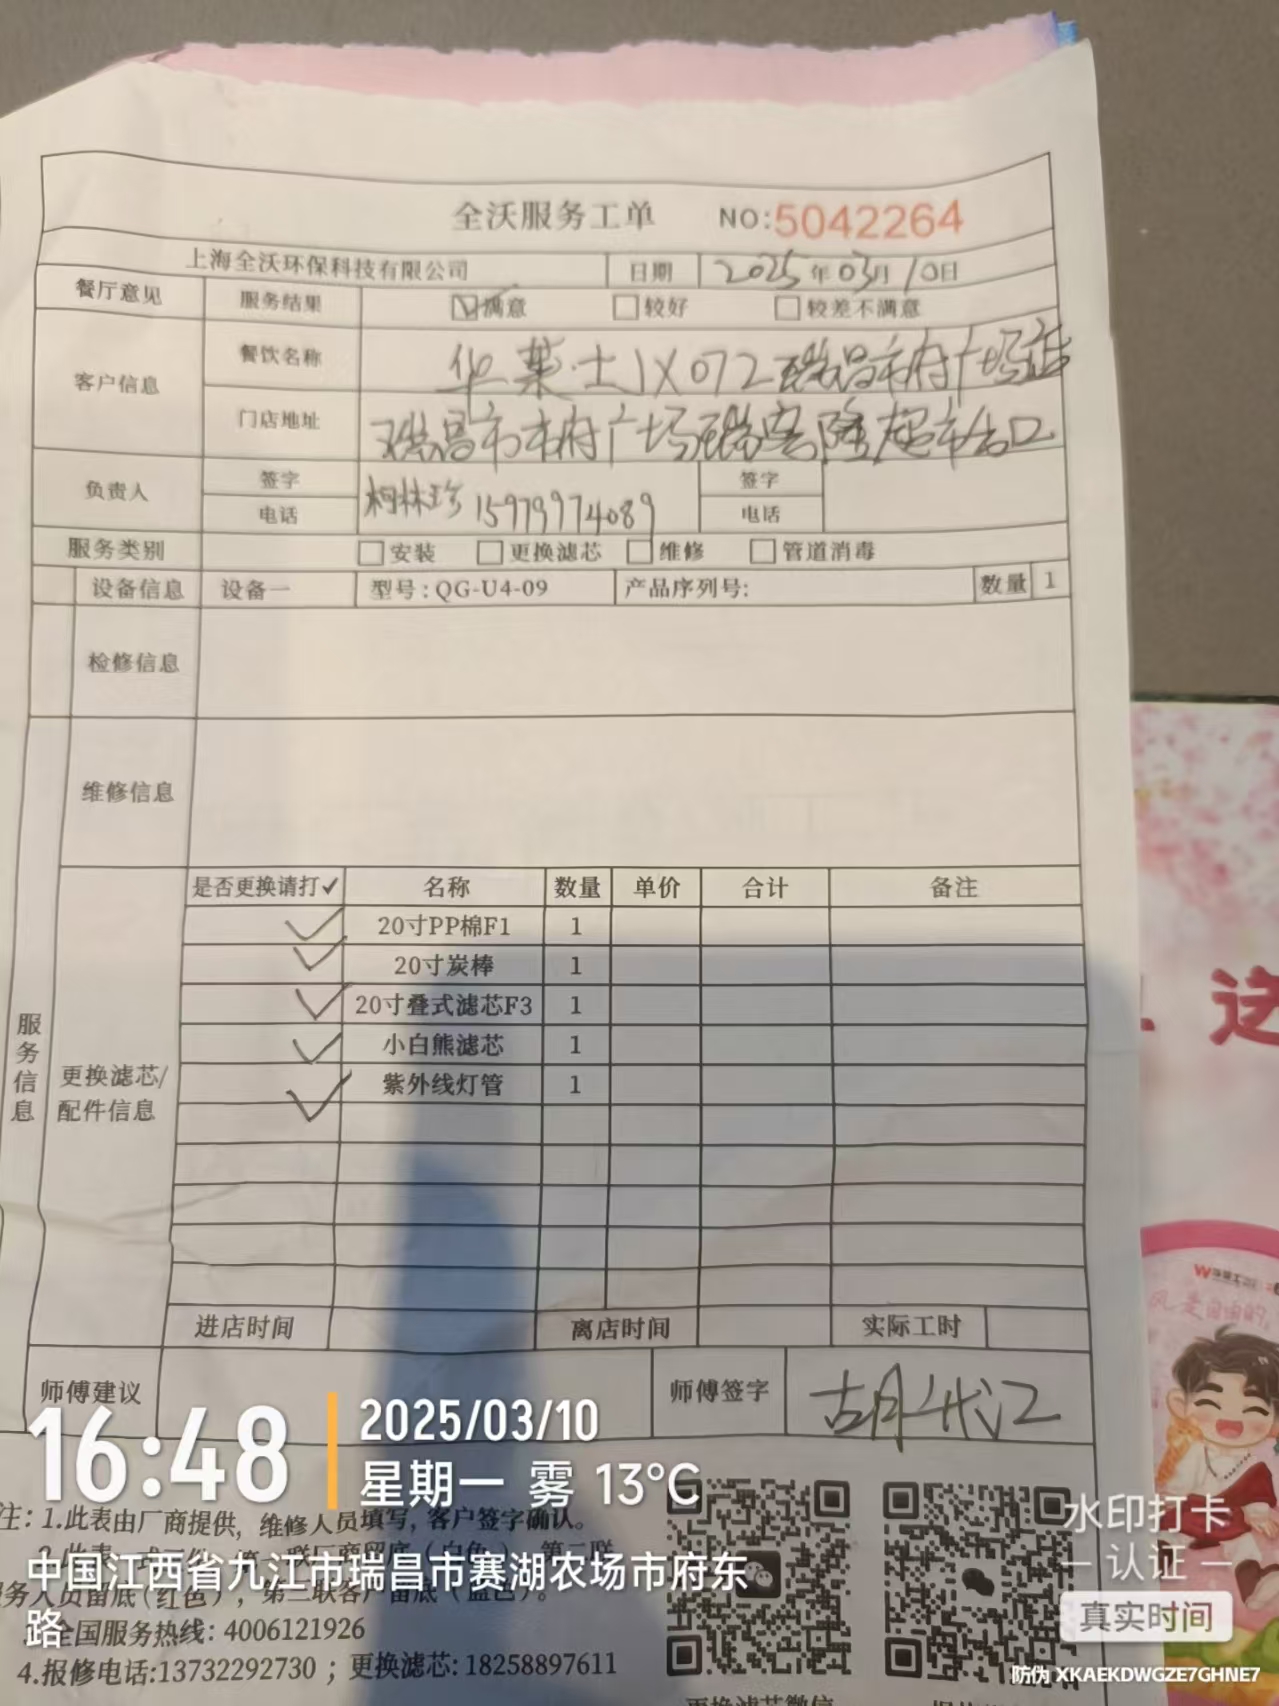 全沃服务工单 NO:5042264
上海全沃环保科技有限公司 日期 2025年03月10日
餐厅意见 服务结果 满意 较好 较差不满意
客户信息 餐饮名称 华莱士JX072瑞昌市府广场店
门店地址 瑞昌市市府广场瑞客隆超市出口
负责人 签字 柯林珍 签字
电话 15979974089 电话
服务类别 安装 更换滤芯 维修 管道消毒
设备信息 设备一 型号:QG-U4-09 产品序列号: 数量 1
检修信息
维修信息
服务信息
更换滤芯/配件信息
是否更换请打✓ 名称 数量 单价 合计 备注
✓ 20寸PP棉F1 1
✓ 20寸炭棒 1
✓ 20寸叠式滤芯F3 1
✓ 小白熊滤芯 1
✓ 紫外线灯管 1
进店时间 离店时间 实际工时
师傅建议 师傅签字 胡代江
16:48
2025/03/10
星期一 雾 13°C
注:1.此表由厂商提供,维修人员填写,客户签字确认。
中国江西省九江市瑞昌市赛湖农场市府东
路
全国服务热线: 4006121926
4.报修电话:13732292730 ; 更换滤芯: 18258897611
更换滤芯微信
水印打卡
认证
真实时间
防伪 XKAEKDWGZE7GHNE7
这